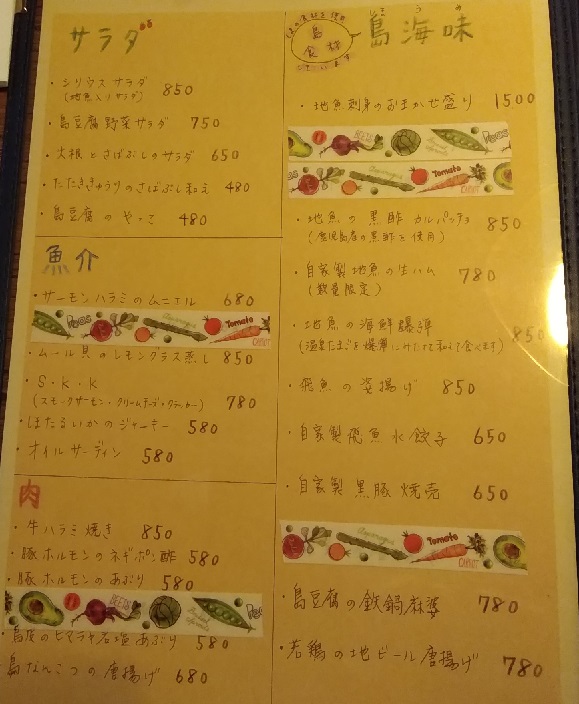 サラダ
・シリウスサラダ 850
(地魚入りサラダ)
・島豆腐野菜サラダ 750
・大根とさばぶしのサラダ 650
・たたききゅうりのさばぶし和え 480
・島豆腐のやっこ 480
魚介
・サーモンハラミのムニエル 680
Peas Asparagus Tomato CARROT
・ムール貝のレモングラス蒸し 850
・S・K・K 780
(スモークサーモン・クリームチーズ・クラッカー)
・ほたるいかのジャーキー 580
・オイルサーディン 580
肉
・牛ハラミ焼き 850
・豚ホルモンのネギポン酢 580
・豚ホルモンのあぶり 580
BEETS
のヒマラヤ岩塩あぶり 580
島なんこつの唐揚げ 680
島食材
島海味
・地魚刺身のおまかせ盛り 1500
BEETS Peas
Asparagus Tomato CARROT
・地魚の黒酢カルパッチョ 850
(鹿児島産の黒酢を使用)
・自家製地魚の生ハム 780
(数量限定)
・地魚の海鮮爆弾 850
(温泉たまごを爆弾にみたてて和えて食べます)
・飛魚の姿揚げ 850
・自家製飛魚水餃子 650
・自家製黒豚焼売 650
Asparagus Tomato CARROT
・島豆腐の鉄鍋麻婆 780
・若鶏の地ビール唐揚げ 780